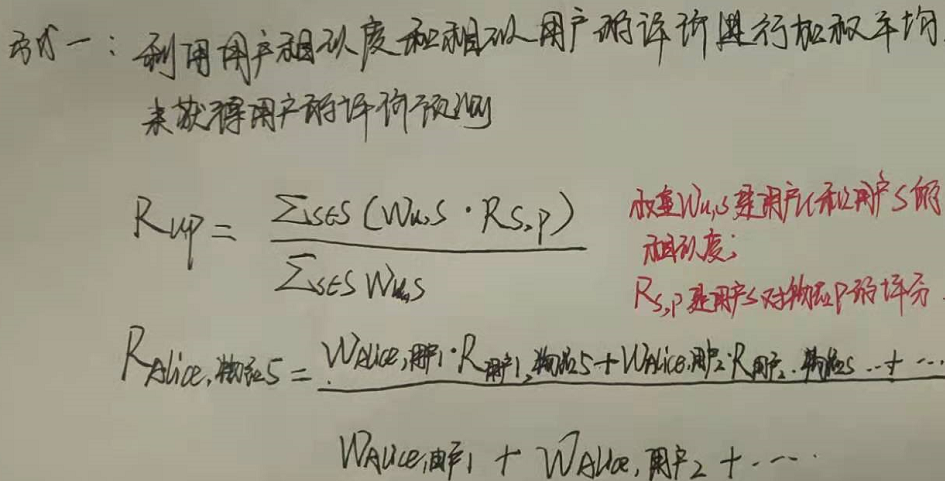 方式一：利用用户相似度和相似用户的评价进行加权平均
来获得用户的评价预测
Rup = ∑s∈S (Wu,s · Rs,p) / ∑s∈S Wu,s
权重Wu,s是用户u和用户s的
相似度；
Rs,p是用户s对物品p的评分
RAlice,物品5 = WAlice,用户1 · R用户1,物品5 + WAlice,用户2 · R用户2,物品5 ..+ ...
WAlice,用户1 + WAlice,用户2 + ....